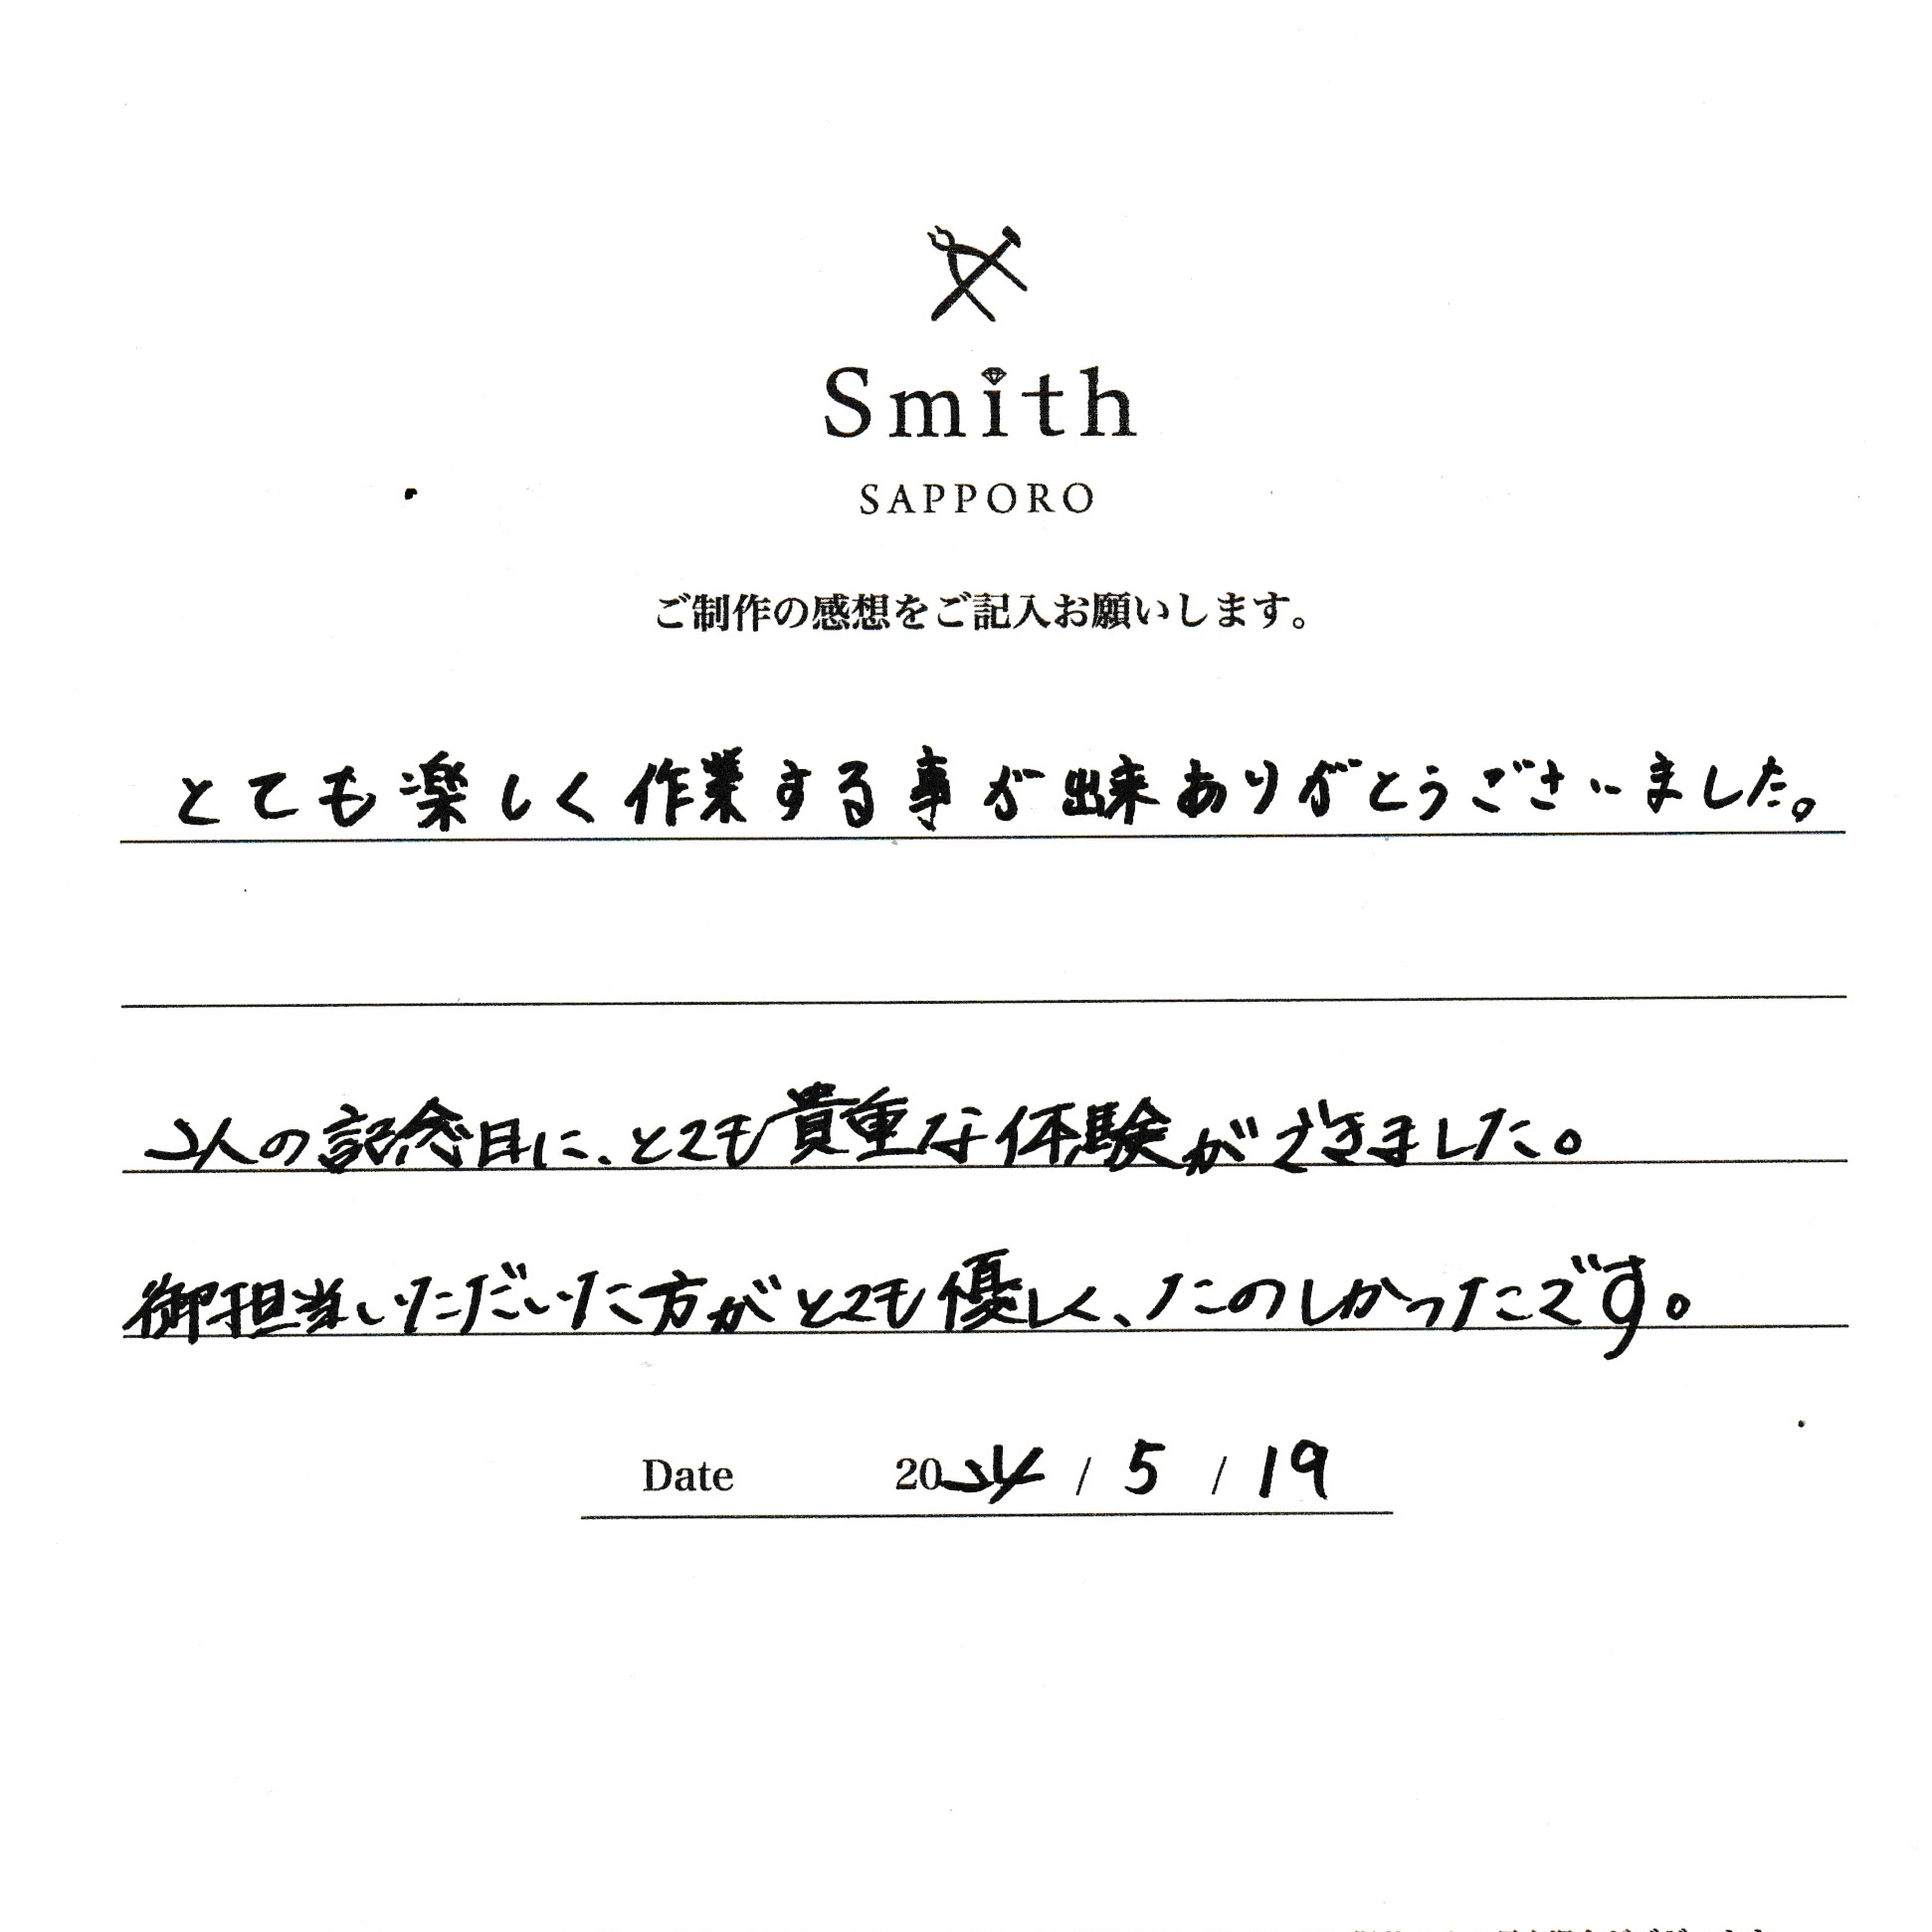 Smith
SAPPORO
ご制作の感想をご記入お願いします。
とても楽しく作業する事が出来ありがとうございました。
2人の記念日に、とても貴重な体験ができました。
御担当いただいた方がとても優しく、たのしかったです。
Date 2024 / 5 / 19